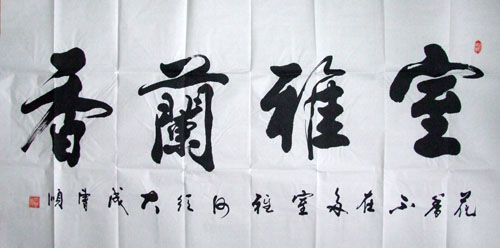 室雅蘭香
花香不在多室雅何須大